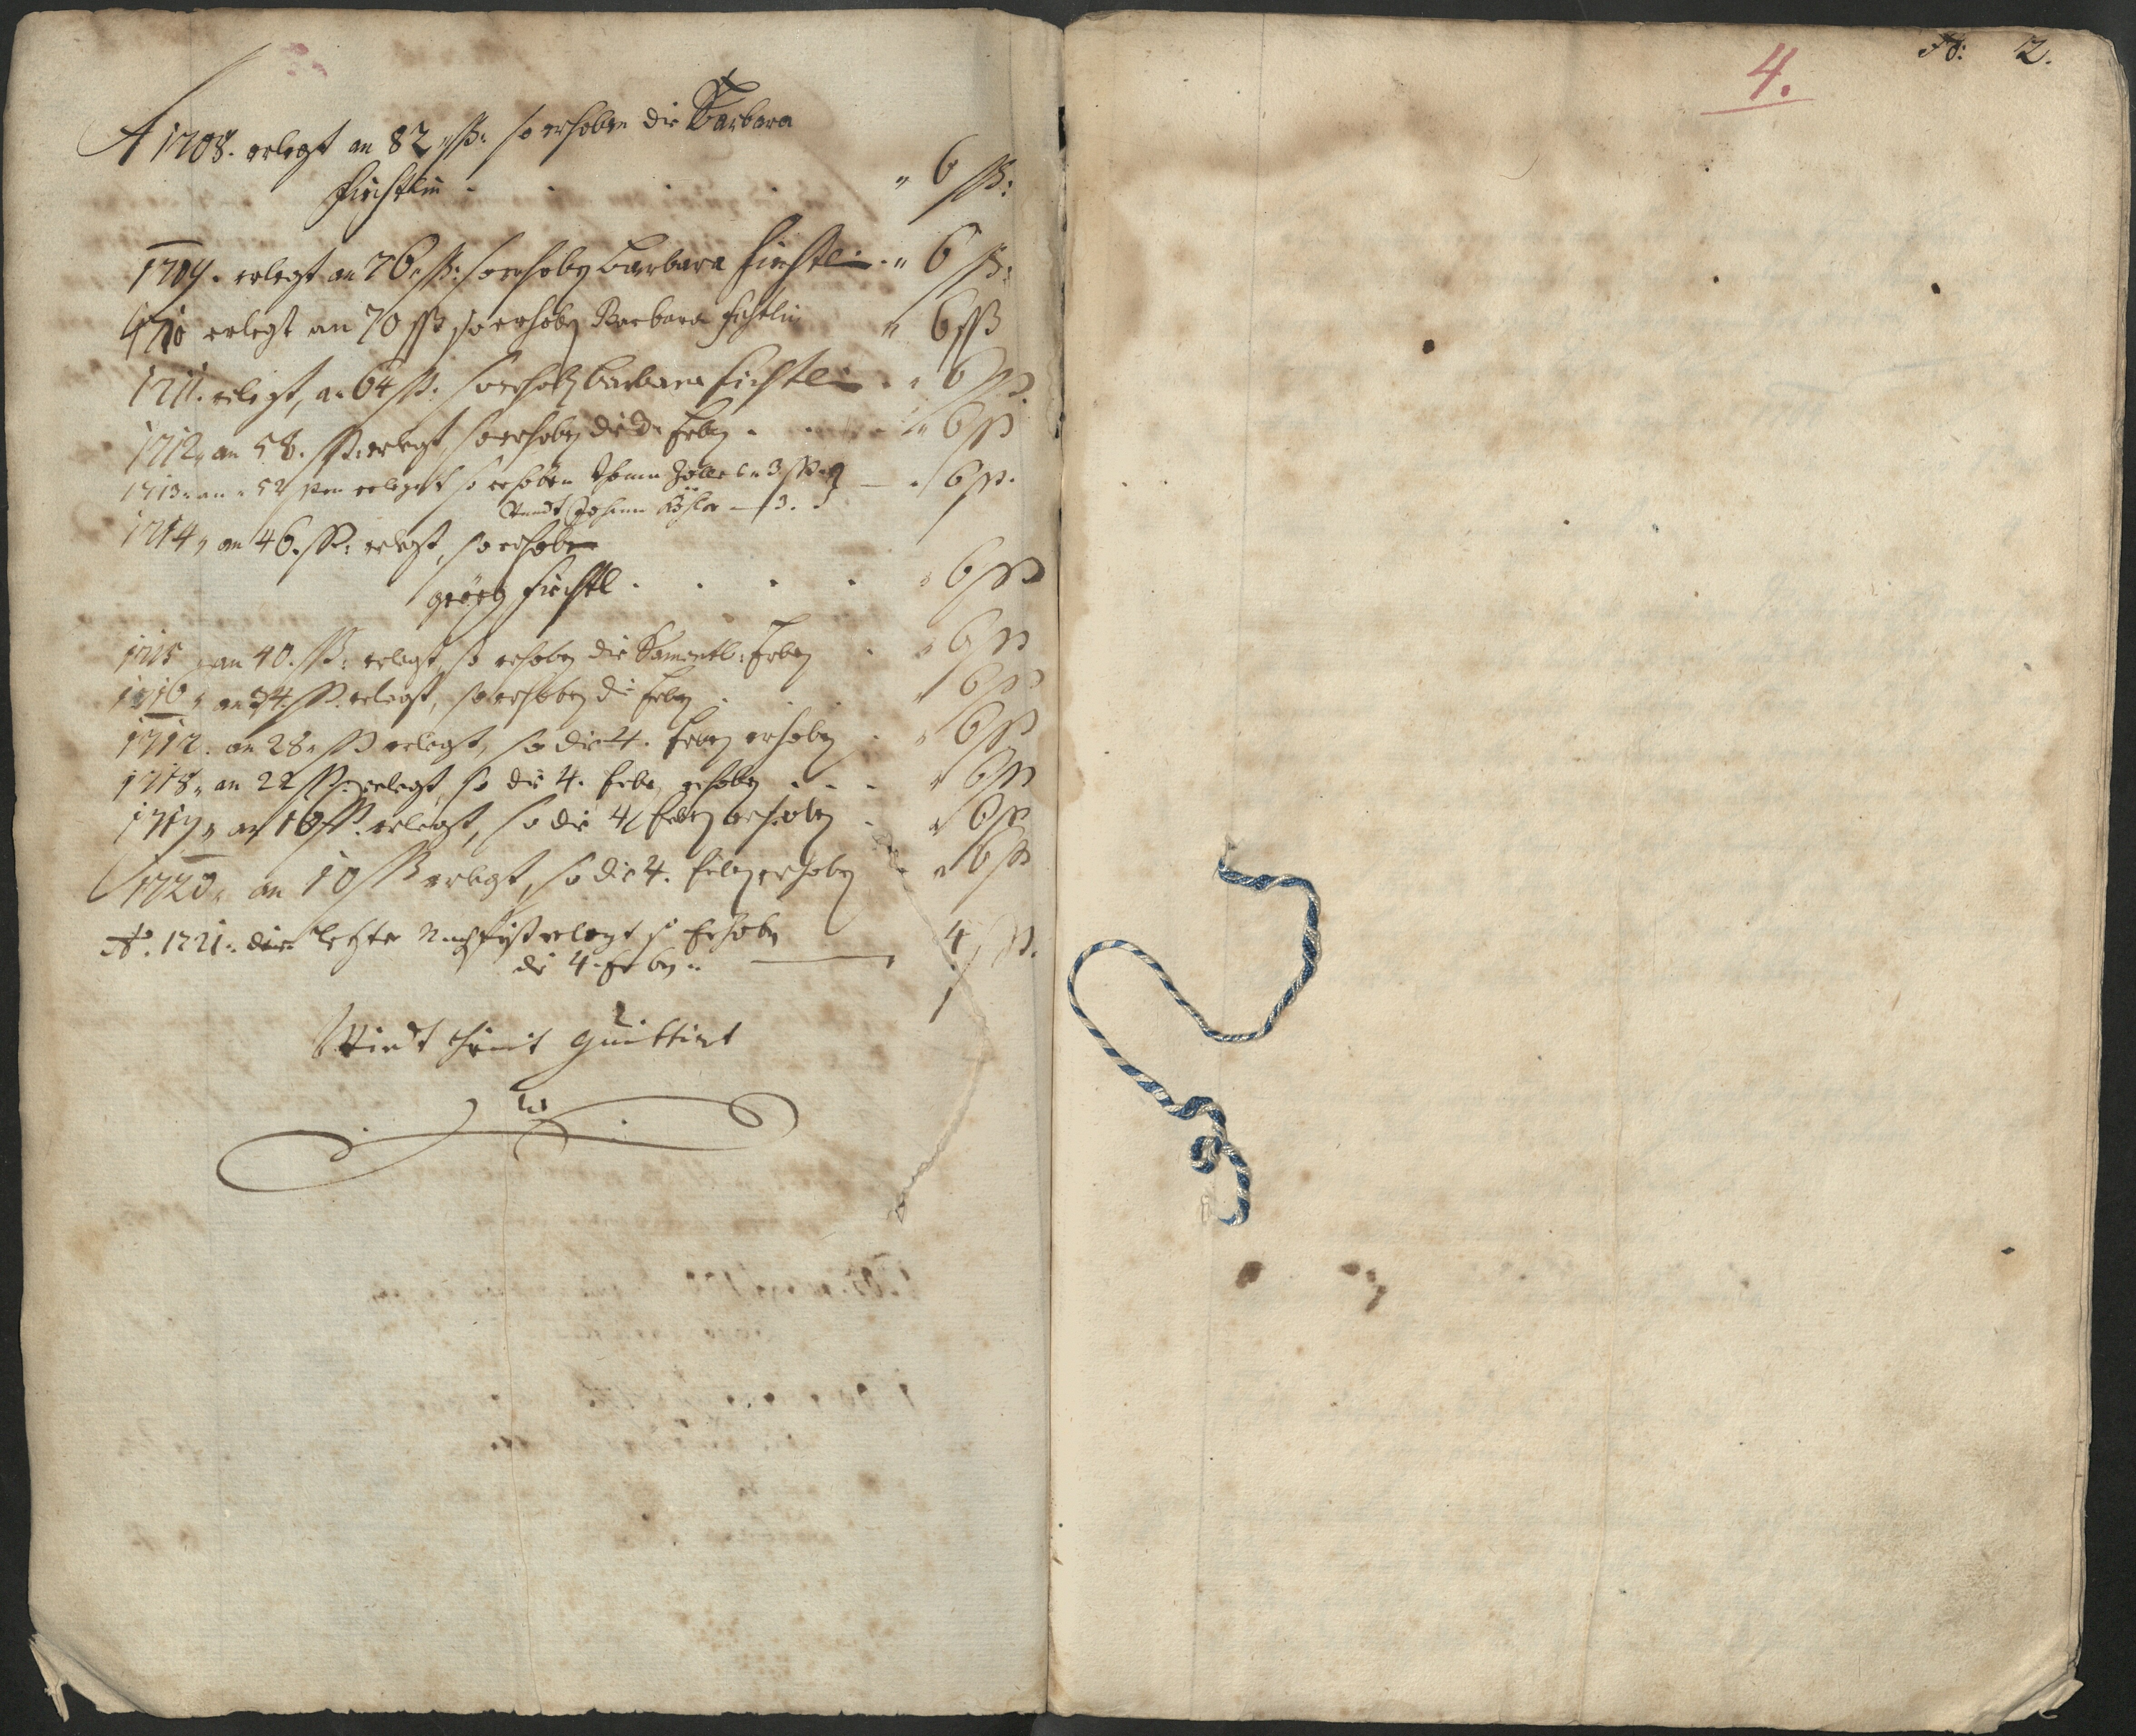 A 1708. erlegt an 82 ßß: so erhoben die Barbara
Fichtlin . . " 6 ßß:
1709. erlegt an 76 ß: so erhobn Barbara Fichtlin . " 6 ß:
1710 erlegt an 70 ßß so erhobn Barbara Fichtlin " 6 ßß
1711. erlegt, an 64 ß: so erhobn Barbara Fichtlin . " 6 ß
1712, an 58. ß. erlegt, so erhobn die Erbn . . " 6 ß
1713. an 52 erlegt so erhoben 3 ß — . 6 ß.
Undt Johann 3.
1714, an 46. ß: erlegt, so erhoben
Georg Fichtl . . . . " 6 ß
1715 an 40. ß: erlegt, so erhobn die Erbn . " 6 ß
1716, an 34. ß. erlegt, so erhobn die Erbn . . " 6 ß
1717. an 28. ß erlegt, so die 4. Erbn erhobn . " 6 ß
1718, an 22 ß. erlegt, so die 4. Erbn erhobn . . . " 6 ß
1719, an 16 ß. erlegt, so die 4 Erbn erhobn . " 6 ß
1720, an 10 ß erlegt, so die 4. Erbn erhobn . " 6 ß
Ao. 1721. die letzte erlegt so Erhobn
die 4. Erbn. — 4 ß.
Wirdt hiemit quittirt
4.
No: 2.